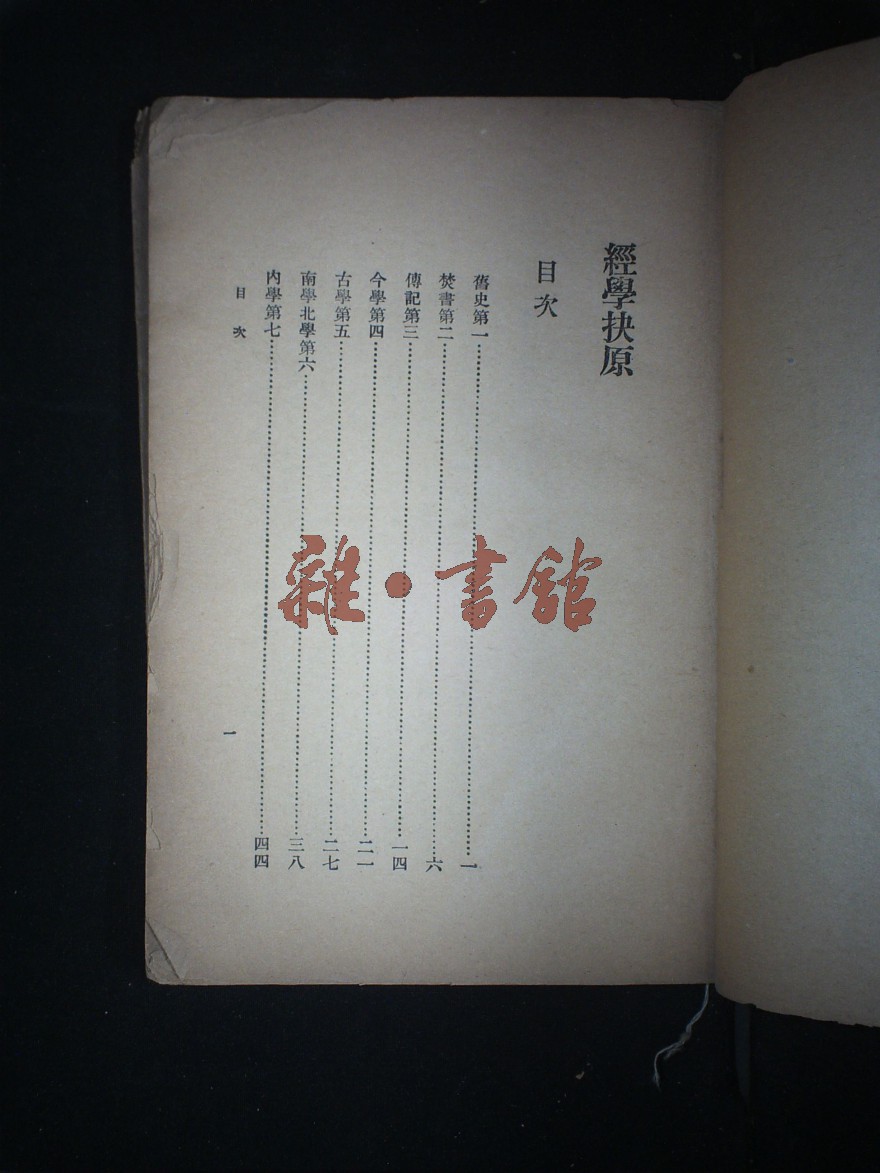 經學抉原
目次
舊史第一……一
焚書第二……六
傳記第三……一四
今學第四……二一
古學第五……二七
南學北學第六……三八
內學第七……四四
目次
一
雜·書館